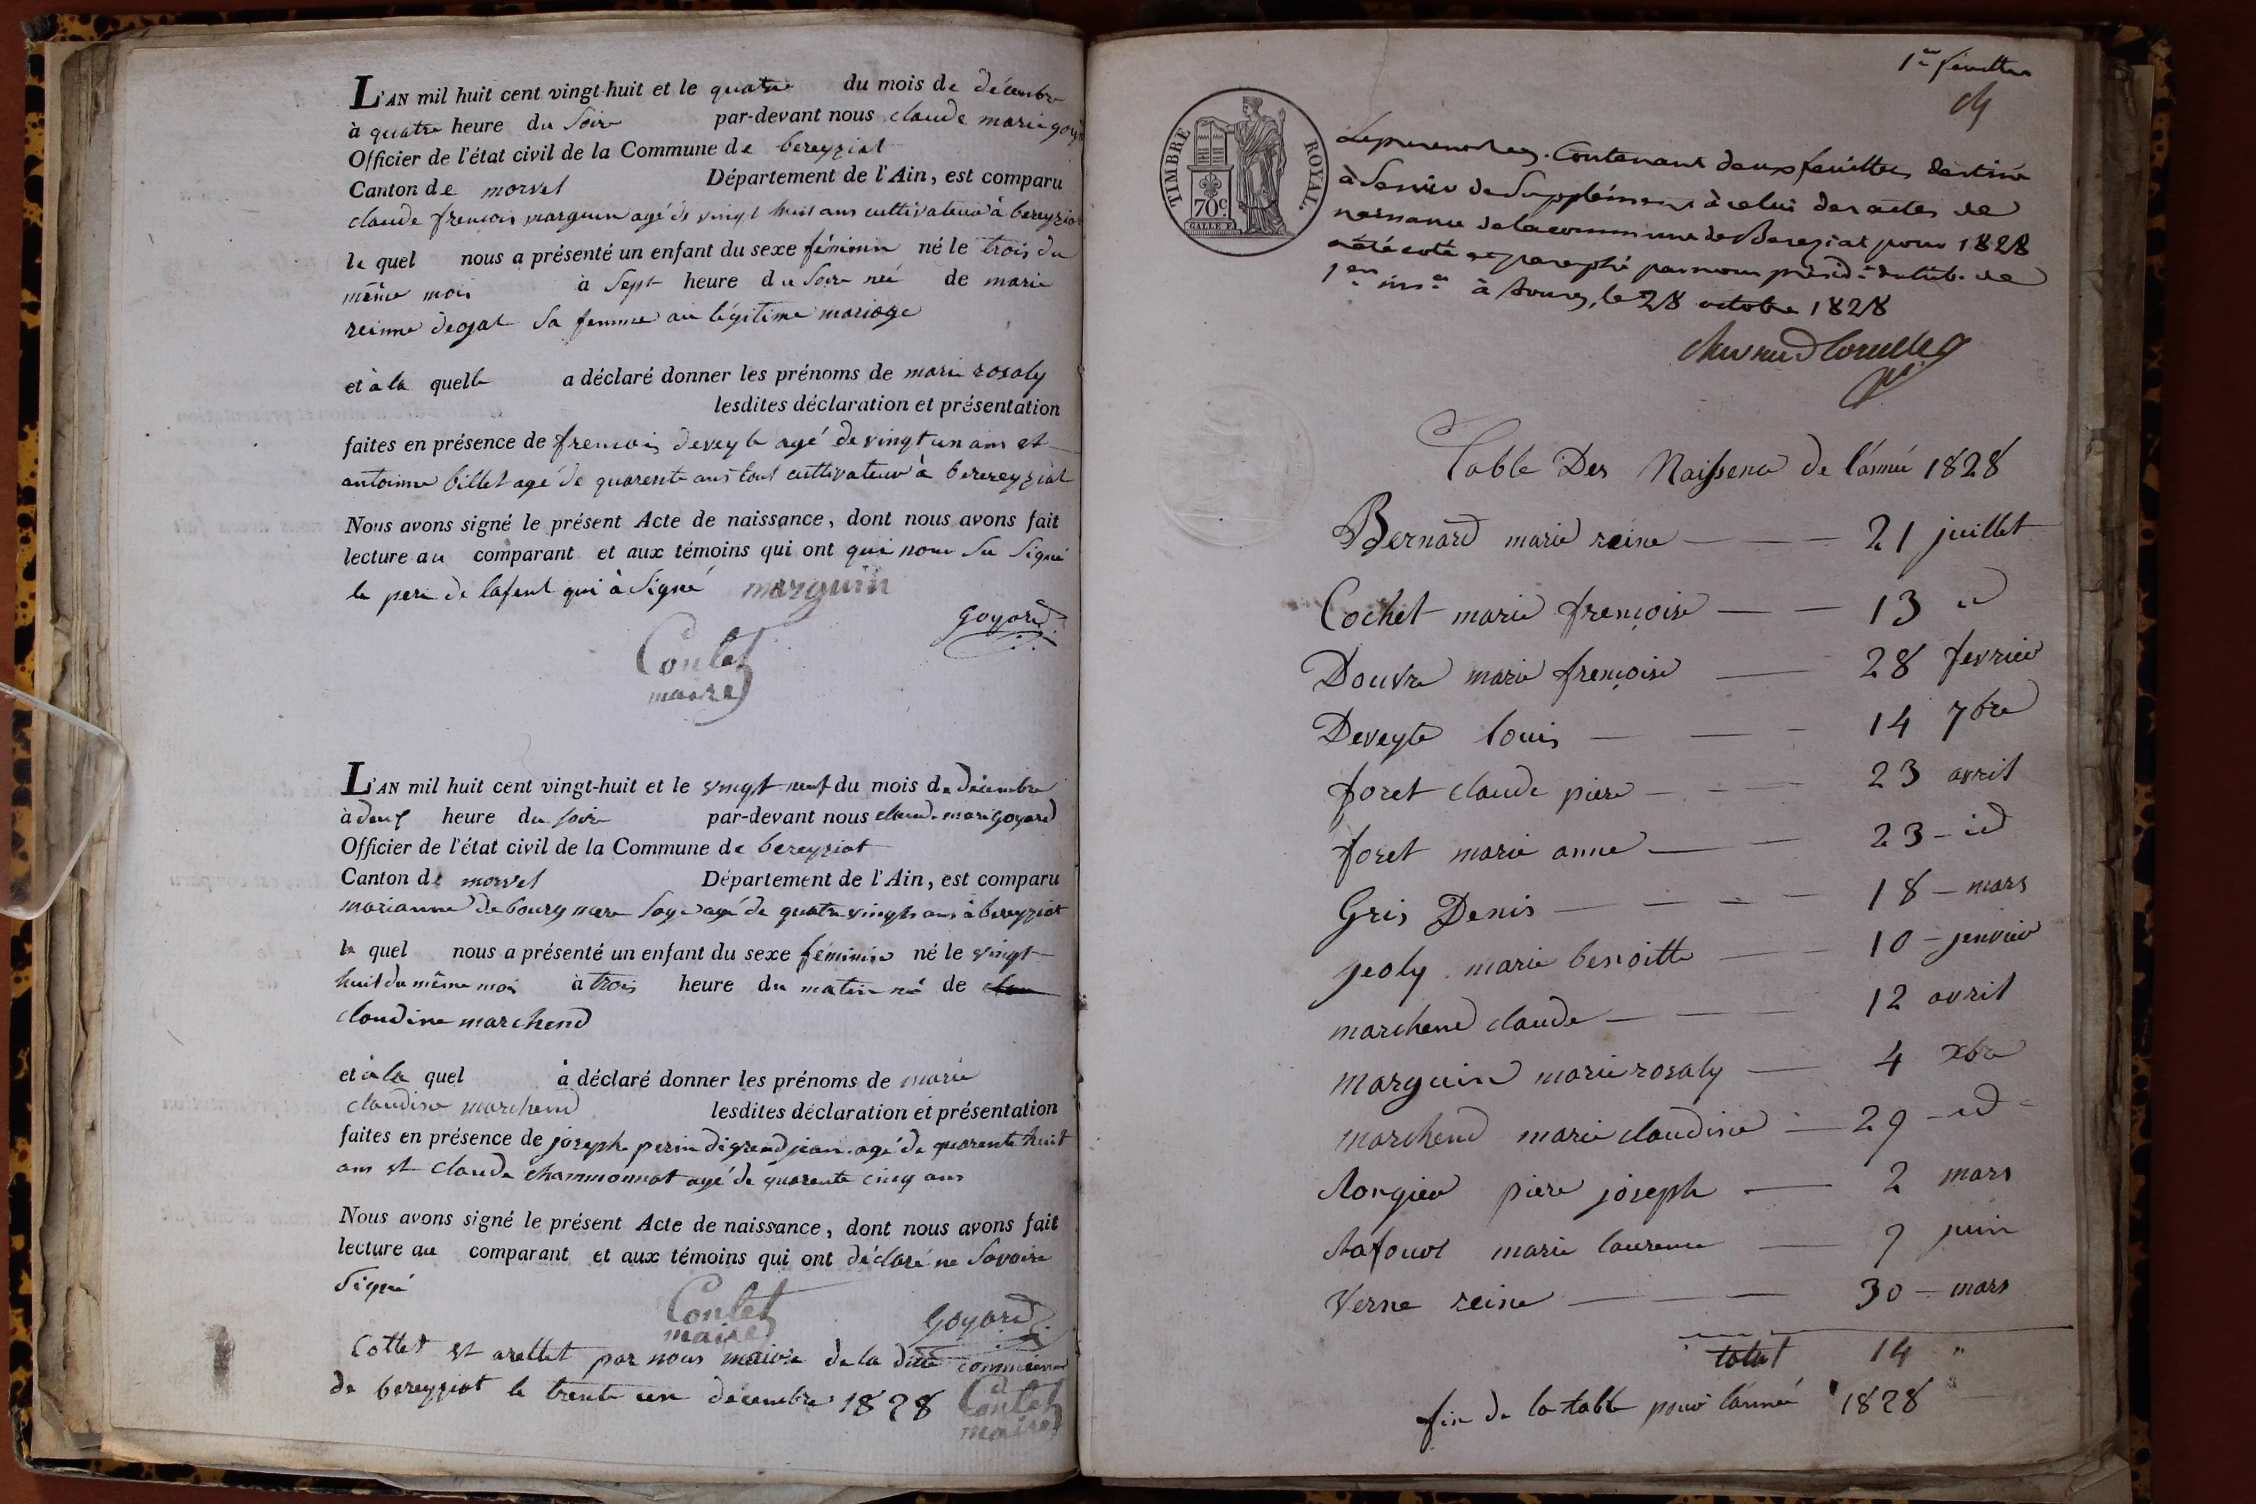 L'AN mil huit cent vingt-huit et le quatre du mois de décembre
à quatre heure du soire par-devant nous claude marie goyard
Officier de l'état civil de la Commune de bereyziat
Canton de morvel Département de l'Ain, est comparu
claude frencois marguin agé de vingt huit ans cultivateur à bereyziat
le quel nous a présenté un enfant du sexe féminin né le trois du
même mois à sept heure du soire née de marie
reinne sa femme légitime mariage
et à la quelle a déclaré donner les prénoms de marie rosaly
lesdites déclaration et présentation
faites en présence de frencois deveyle agé de vingt un ans et
antoinne billet agé de quarente ans tout cultivateur à berereyziat
Nous avons signé le présent Acte de naissance, dont nous avons fait
lecture au comparant et aux témoins qui ont qui nous su signé
le pere de lafent qui à signé marguin
goyard
Coulet
maire
L'AN mil huit cent vingt-huit et le vingt neuf du mois de décembre
à deux heure du soire par-devant nous claude marie goyard
Officier de l'état civil de la Commune de bereyziat
Canton de morvel Département de l'Ain, est comparu
marianne debourg mere sage agé de quatre vingts ans à bereyziat
le quel nous a présenté un enfant du sexe féminin né le vingt
huit du même moi à trois heure du matin né de
claudine marchend
et à la quel à déclaré donner les prénoms de marie
claudine marchend lesdites déclaration et présentation
faites en présence de joseph perin digrandjean agé de quarente huit
ans et claude chammonnat agé de quarente cinq ans
Nous avons signé le présent Acte de naissance, dont nous avons fait
lecture au comparant et aux témoins qui ont déclaré ne savoire
signé
Coulet
maire
goyard
Cottet et arettet par nous maire de la dite commune
de bereyziat le trente un decembre 1828
Coulet
maire
1er feuillet
TIMBRE ROYAL.
70c
GALLE F.
Le present reg. Contenant deux feuillets destiné
à servir de supplément à celui des actes de
naissance de la commune de Bereziat pour 1828
a été coté et paraphé par nous présidt du trib. de
1ere insce à Bourg, le 28 octobre 1828
Table Des Naissence de l'année 1828
Bernard marie reine 21 juillet
Cochet marie frençoise 13 id
Douvre marie frençoise 28 fevrier
Deveyle louis 14 7bre
foret claude piere 23 avril
foret marie anne 23 id
Gris Denis 18 mars
jeoly marie benoitte 10 jenvier
marchend claude 12 avril
marguin marie rosaly 4 xbre
marchend marie claudine 29 id
Rongier piere joseph 2 mars
Rafour marie laurence 9 juin
Verne reine 30 mars
total 14 "
fin de la table pour l'année 1828